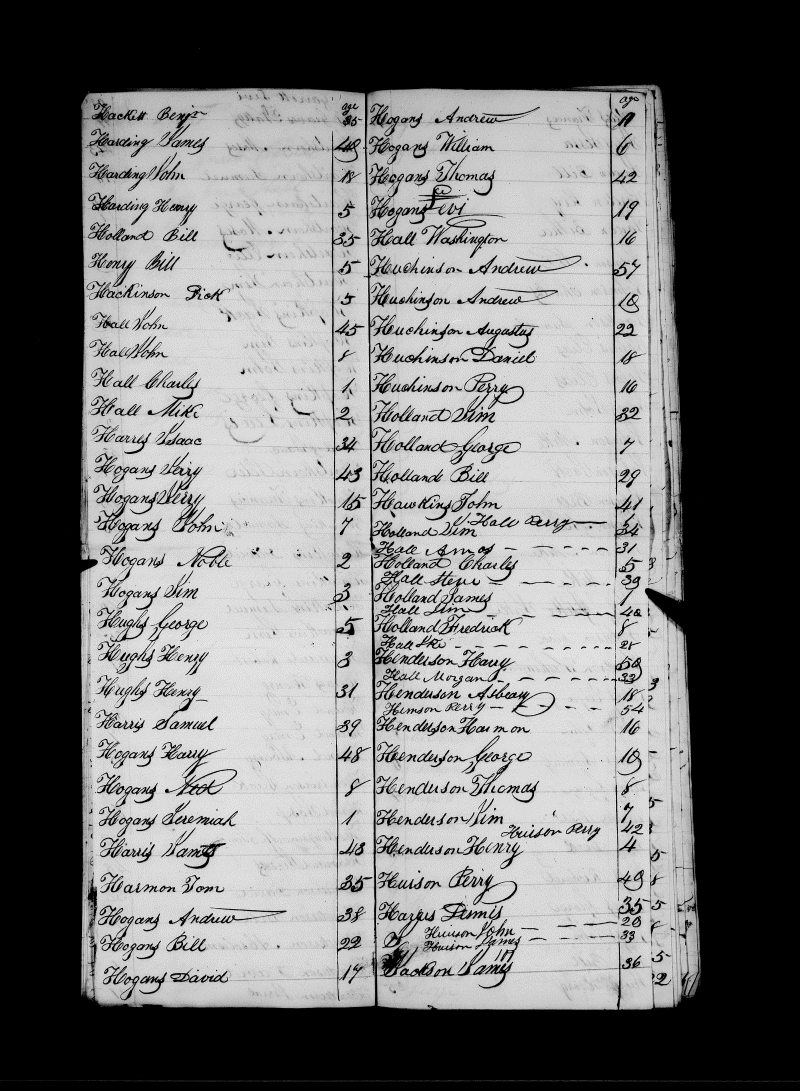 age
Hackett Benjn 35
Harding James 48
Harding John 18
Harding Henry 5
Holland Bill 35
Henry Bill 5
Hackinson Dick 5
Hall John 45
Hall John 8
Hall Charles 1
Hall Mike 2
Harres Isaac 34
Hogans Jerry 43
Hogans Jerry 15
Hogans John 7
Hogans Noble 2
Hogans Jim 3
Hughs George 5
Hughs Henry 3
Hughs Henry 31
Harris Samuel 39
Hogans Harry 48
Hogans Ned 8
Hogans Jeremiah 1
Harris James 43
Harmon Tom 35
Hogans Andrew 38
Hogans Bill 22
Hogans David 17
age
Hogans Andrew 11
Hogans William 6
Hogans Thomas 42
Hogans Levi 19
Hall Washington 16
Huchinson Andrew 57
Huchinson Andrew 18
Huchinson Augustus 22
Huchinson Daniel 18
Huchinson Perry 16
Holland Jim 32
Holland George 7
Holland Bill 29
Hawkins John 41
Hall Perry
Holland Jim 34
Hall Amos 31
Holland Charles 5
Hall Steve 39
Holland James 1
Hall Jim 48
Holland Fredrick 8
Hall Ike 28
Henderson Harry 50
Hall Morgan 33
Henderson Asbeary 18
Hinson Perry 54
Henderson Harmon 16
Henderson George 18
Henderson Thomas 8
Henderson Jim 7
Huison Perry 42
Henderson Henry 4
Huison Perry 49
Harges Dennis 35
Huison John 20
Huison James 33
Jackson James 36